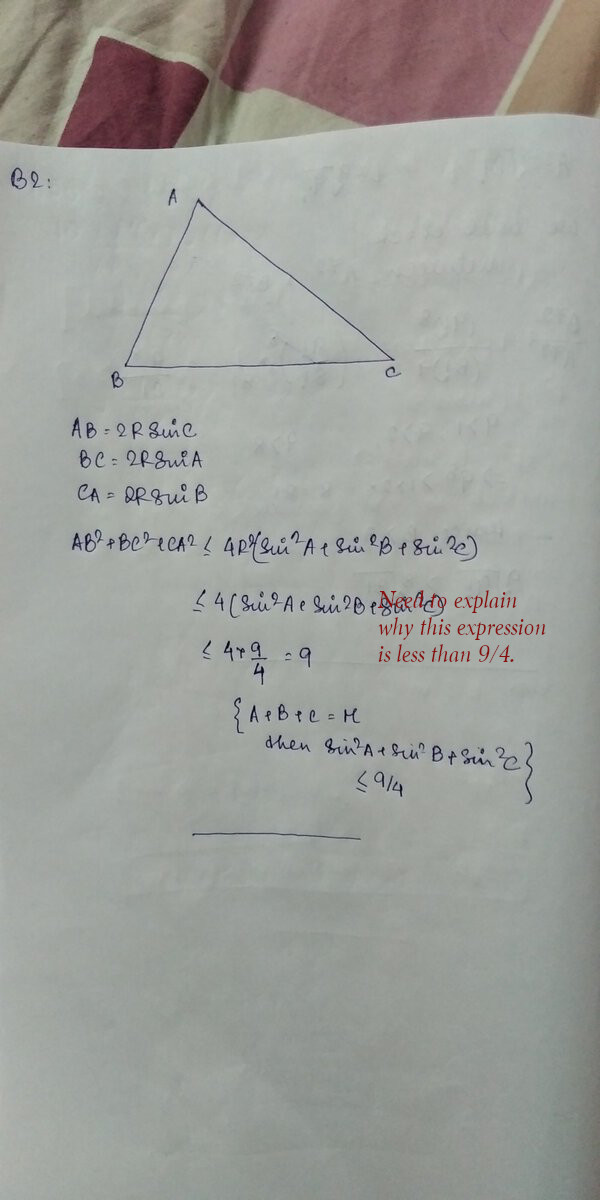 B2:
A
B
C
AB = 2R sin C
BC = 2R sin A
CA = 2R sin B
AB²+BC²+CA² ≤ 4R²(sin²A + sin²B + sin²C)
≤ 4(sin²A + sin²B + sin²C)
Need to explain
why this expression
is less than 9/4.
≤ 4 × 9/4 = 9
{A+B+C = π
then sin²A + sin²B + sin²C}
≤ 9/4